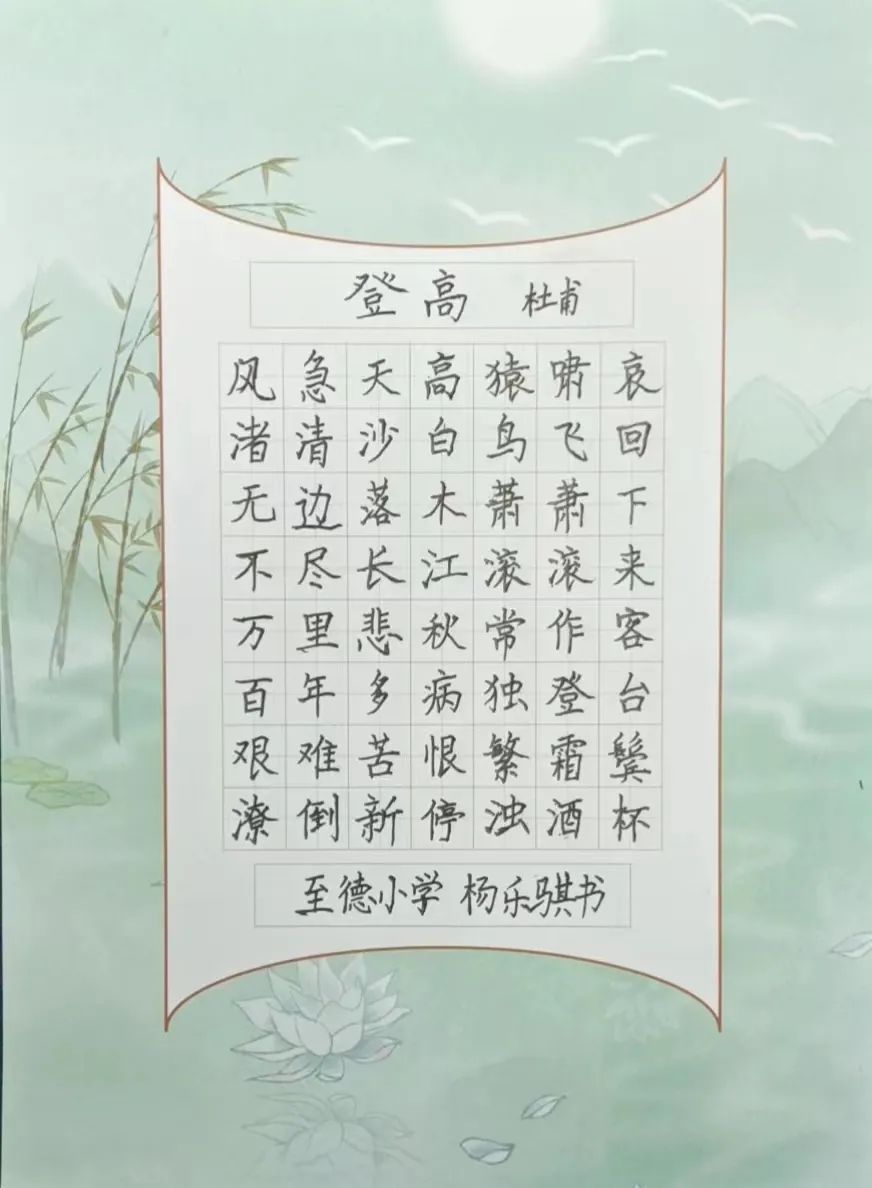 登高 杜甫
风急天高猿啸哀
渚清沙白鸟飞回
无边落木萧萧下
不尽长江滚滚来
万里悲秋常作客
百年多病独登台
艰难苦恨繁霜鬓
潦倒新停浊酒杯
至德小学 杨乐骐书